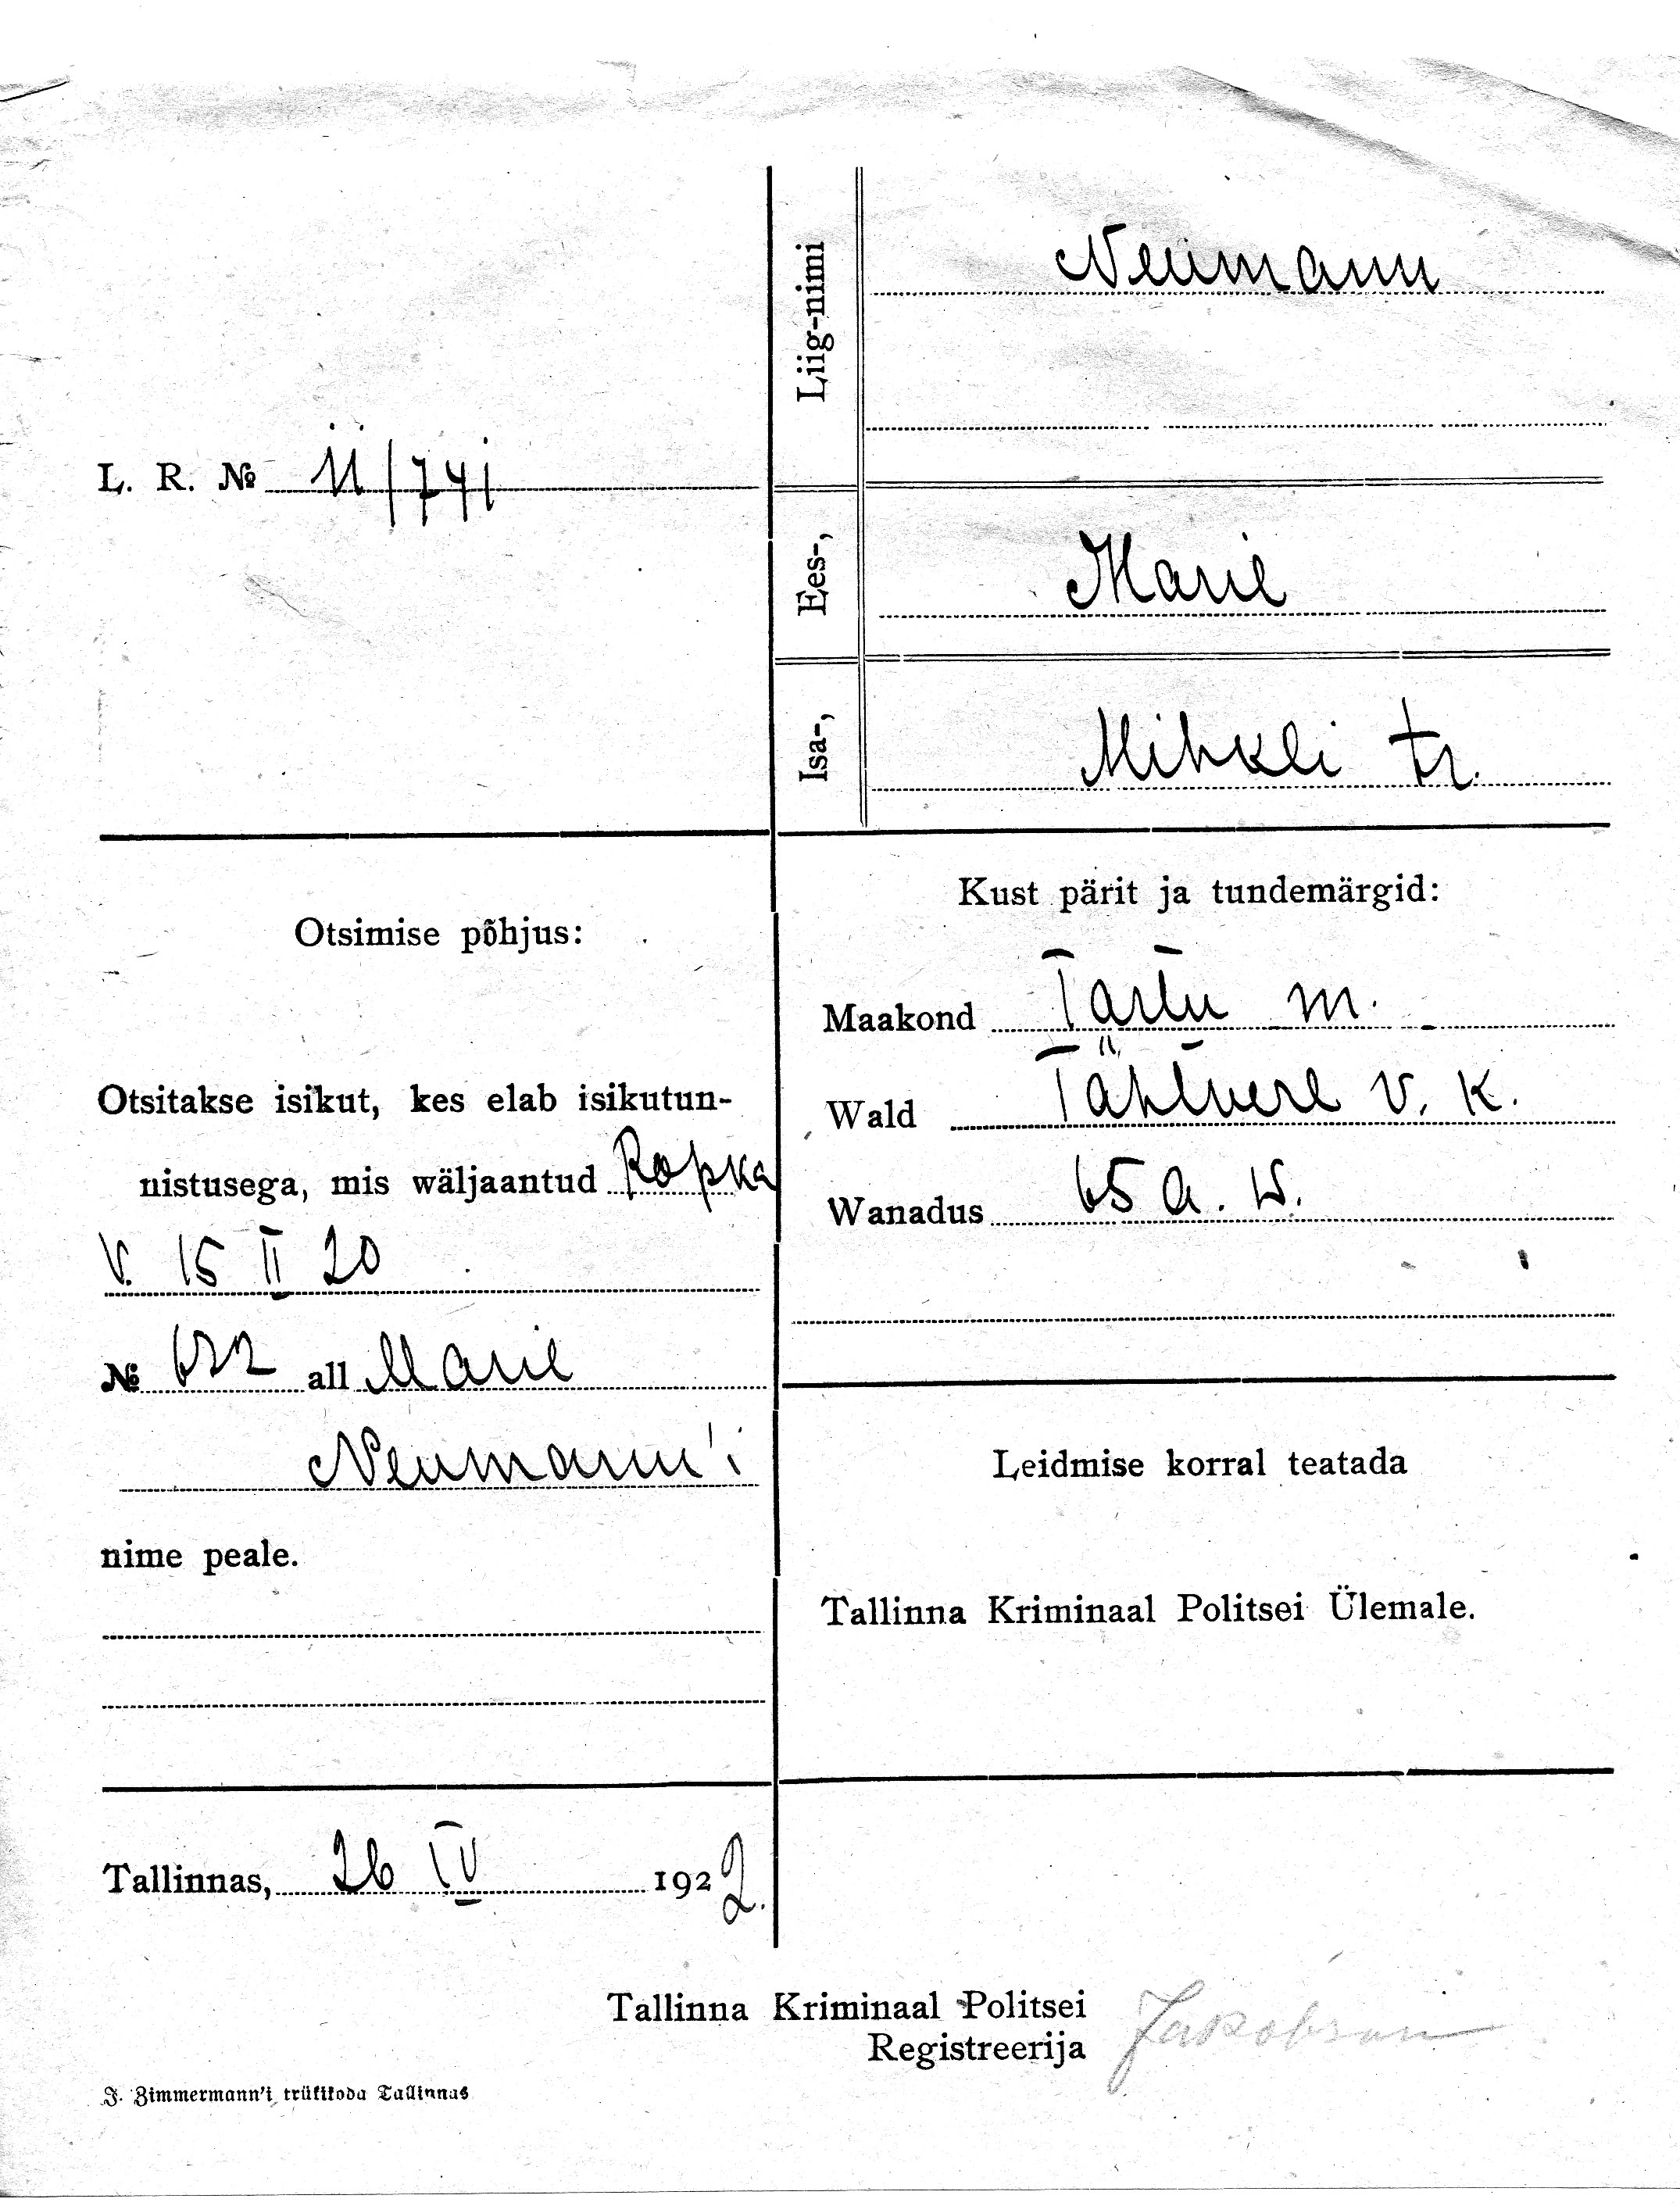 Liig-nimi Neumann
L. R. № 11/741
Ees-, Marie
Isa-, Mihkli tr.
Otsimise põhjus:
Otsitakse isikut, kes elab isikutun-
nistusega, mis wäljaantud Ropka
V. 15 II 20
№ 622 all Marie
Neumann'i
nime peale.
Kust pärit ja tundemärgid:
Maakond Tartu m.
Wald Tähtvere v. k.
Wanadus 65 a. w.
Leidmise korral teatada
Tallinna Kriminaal Politsei Ülemale.
Tallinnas, 26 IV 1922.
Tallinna Kriminaal Politsei
Registreerija Jakobson
J. Zimmermann'i trükikoda Tallinnas